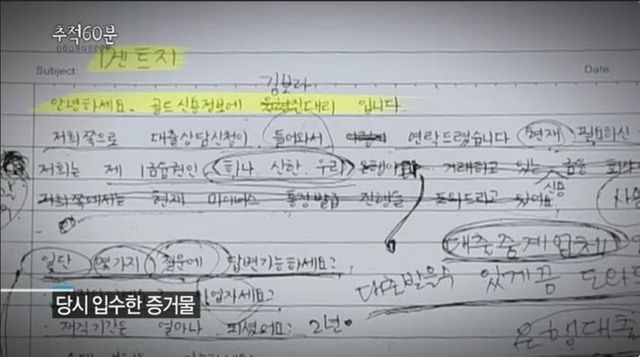 추적60분
멘트지
Subject:
Date:
김보라
안녕하세요. 골드신용정보에 대리 입니다.
저희쪽으로 대출상담신청이 들어와서 연락드렸습니다 현재 필요하신
저희는 제 1금융권인 (하나, 신한, 우리) 은행 거래하고 있는 금융
신용
저희쪽에서는 현재 마이너스 통장발급 진행을 도와드리고 있어요.
대출중계업체
일단 몇가지 질문에 답변가능하세요?
대출받을수 있게끔 도와
업자세요?
당시 입수한 증거물
재직기간은 얼마나 되셨어요? 2년
은행대출